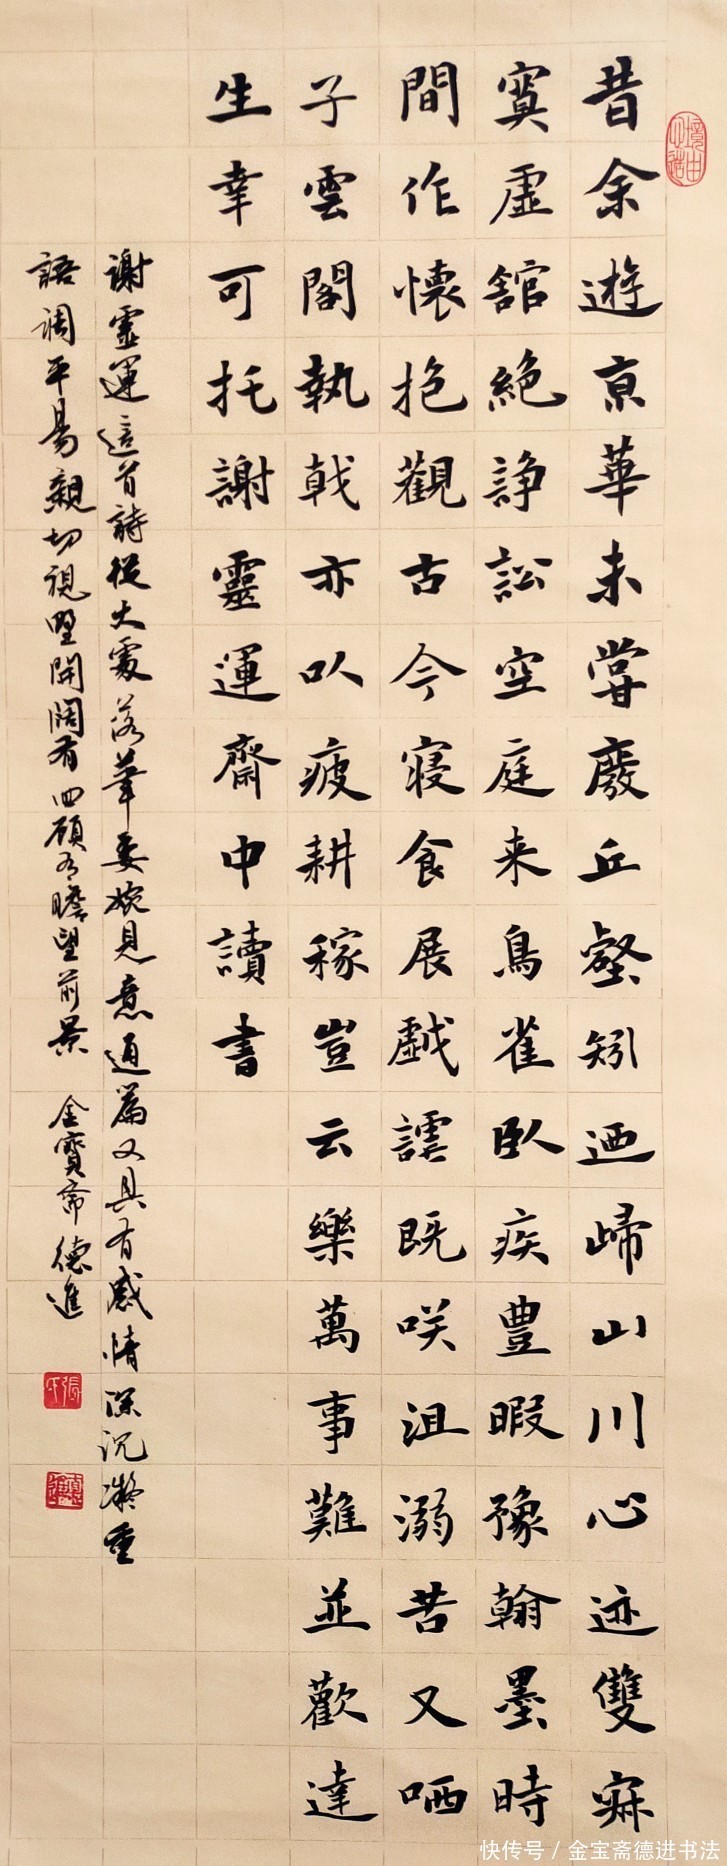 境由心造
昔余遊京華未甞廢丘壑矧迺歸山川心迹雙寂
寞虛舘絕諍訟空庭来鳥雀臥疾豊暇豫翰墨時
間作懷抱觀古今寢食展戱謔既咲沮溺苦又哂
子雲閣執戟亦以疲耕稼豈云樂萬事難並歡達
生幸可托謝靈運齋中讀書
谢靈運這首詩從大處落筆委婉見意通篇又具有感情深沉凝重
語调平易親切視野開阔有回顾有瞻望前景 金寶斎德進
快传号 / 金宝斋德进书法